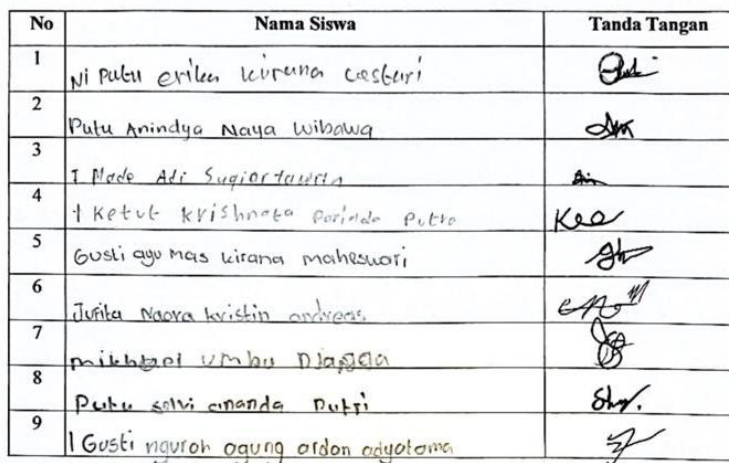 No Nama Siswa Tanda Tangan
1 Ni Putu erika kirana Lestari
2 Putu Anindya Naya Wibawa
3 I Made Adi
4 I Ketut Krishnata Putra
5 Gusti ayu mas kirana maheswari
6 Jufita Naora kristin andreas
7 mikhael umbu
8 Putu selvi ananda Putri
9 I Gusti ngurah agung ardan adyatama